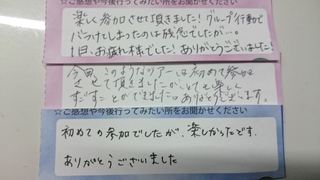 ☆ご感想や今後行ってみたい所をお聞かせください
楽しく参加させて頂きました!グループ行動で
バラけてしまったのは残念でしたが…。
1日、お疲れ様でした!ありがとうございました!
今回、このようなツアーは初めて参加
させて頂きましたがとても楽しく
すごすことができました。ありがとうございます。
☆ご感想や今後行ってみたい所をお聞かせください
初めての参加でしたが、楽しかったです。
ありがとうございました